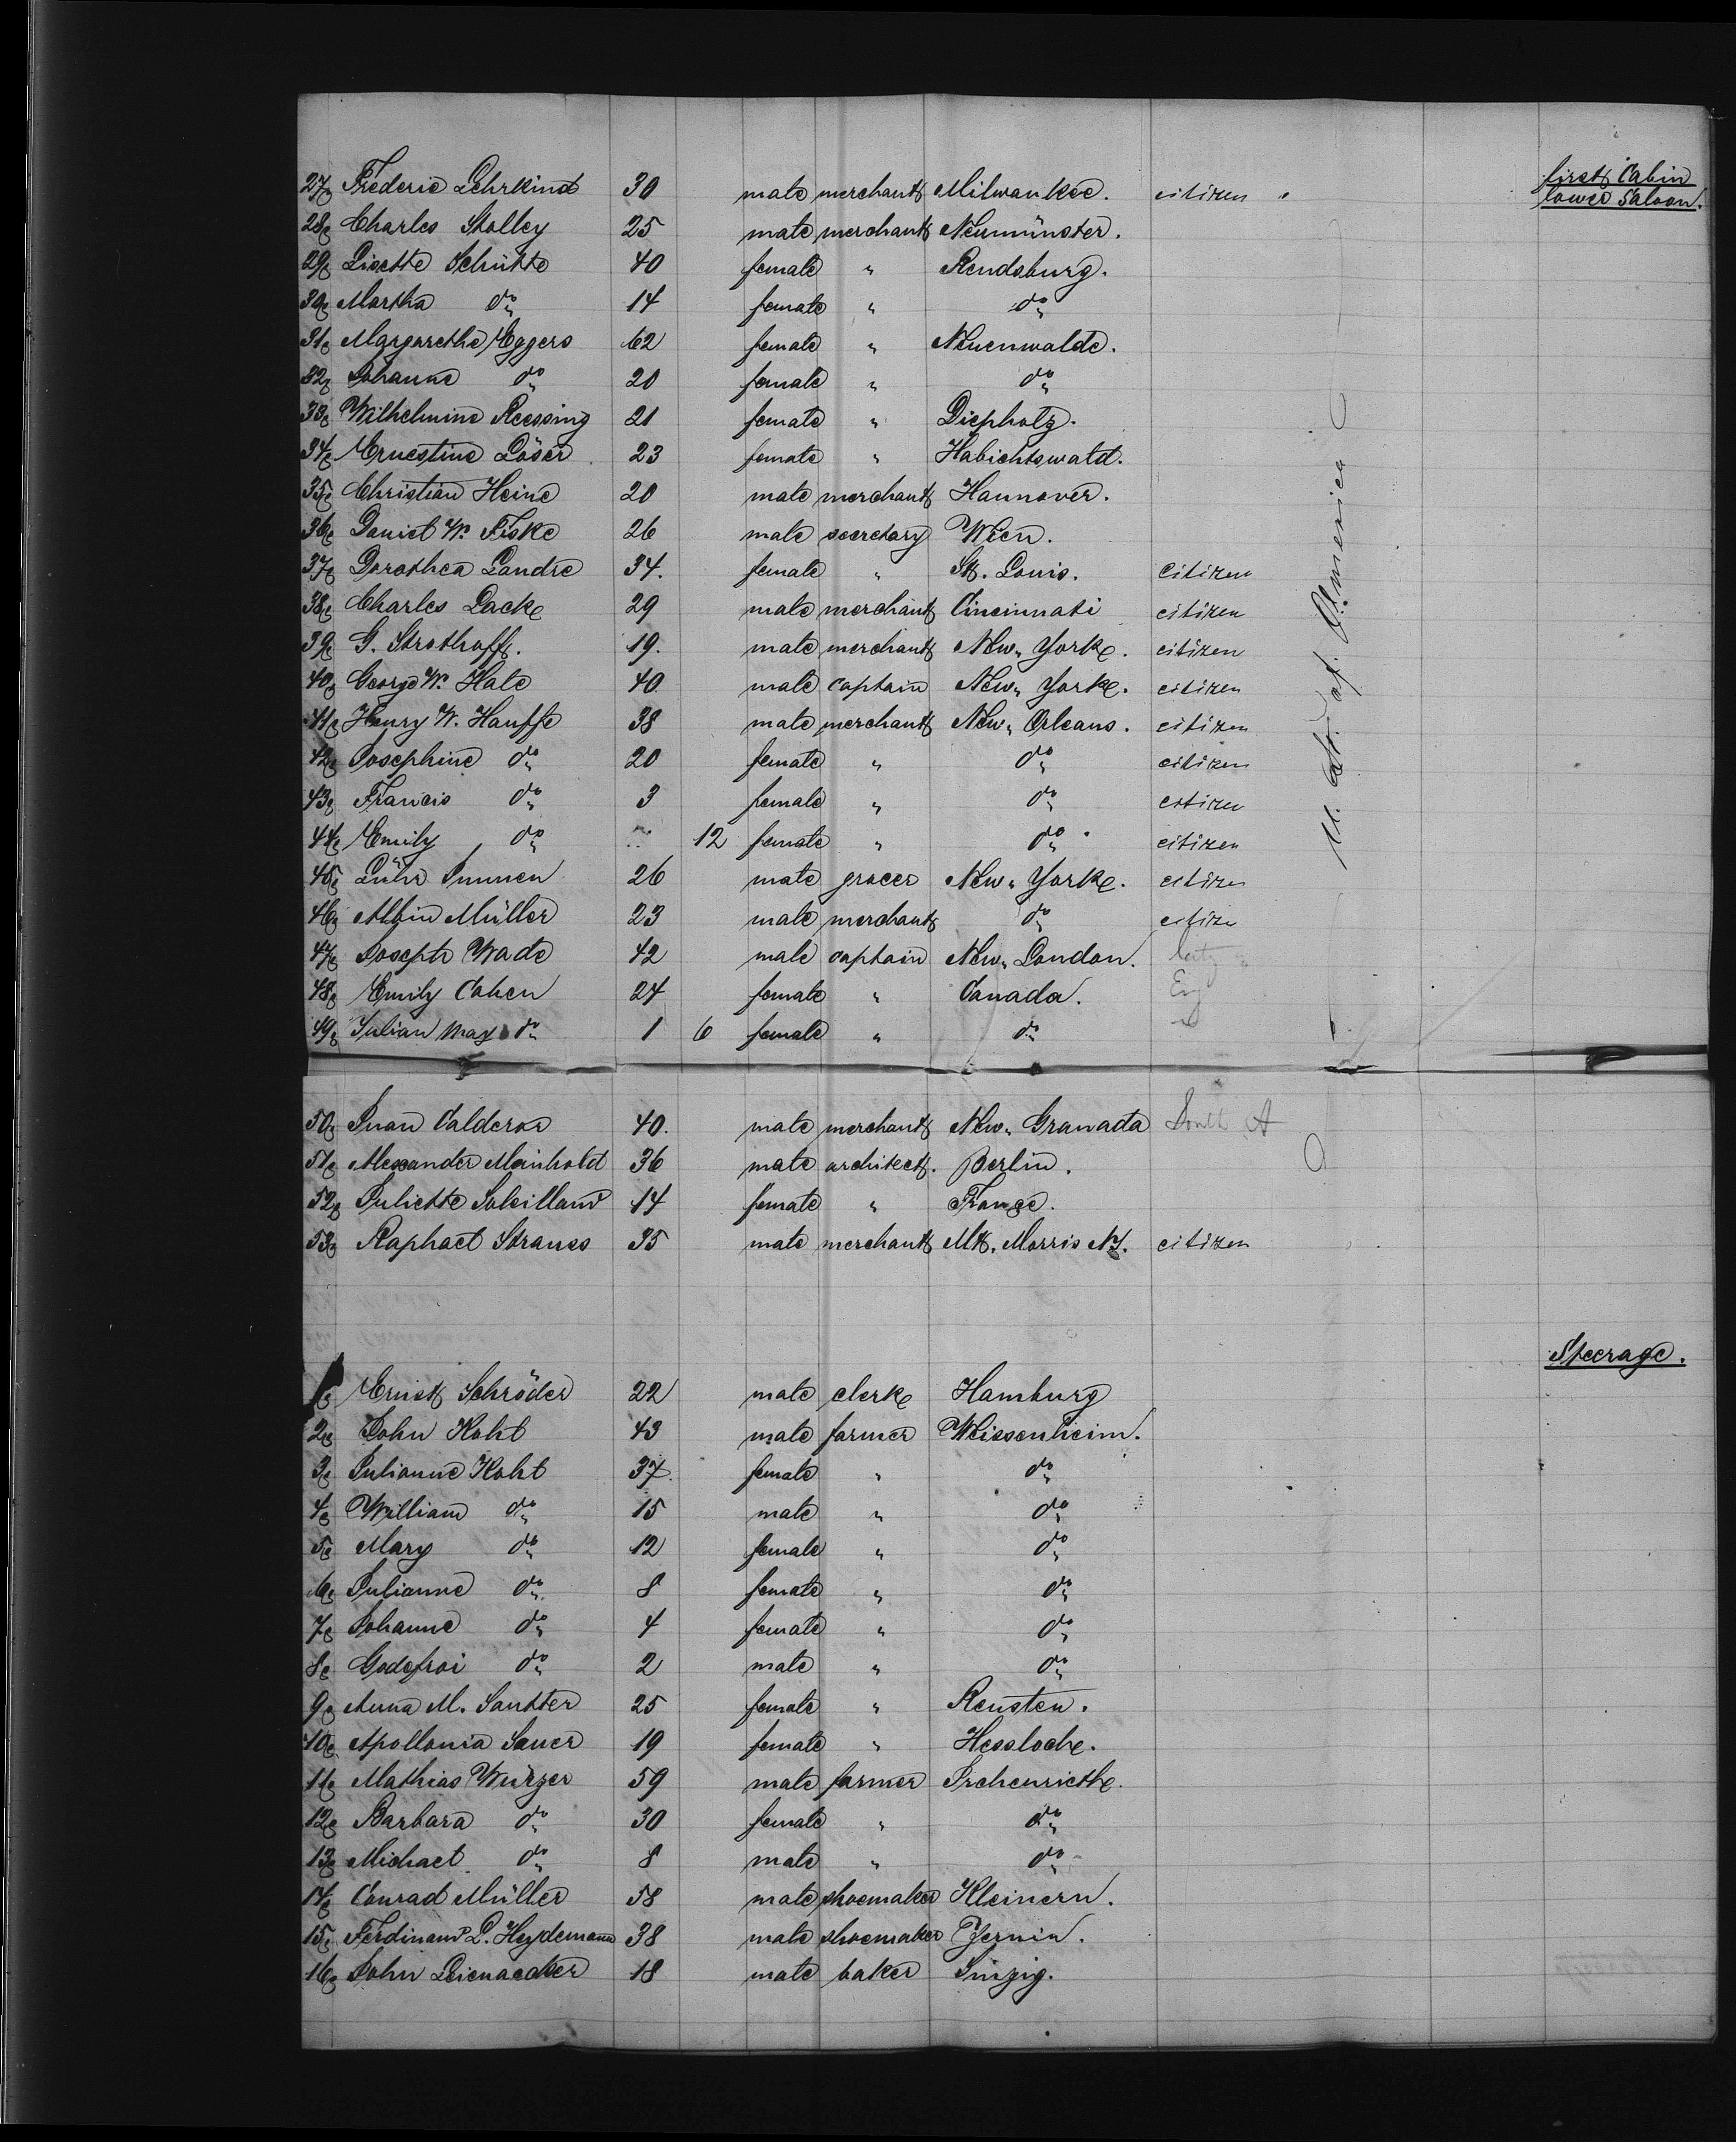 27, Frederic Lehrkind 30 male merchant Milwaukee. citizen " first Cabin lower Saloon.
28, Charles Stolley 25 male merchant Neumünster.
29, Lisette Schütte 40 female " Rendsburg.
30, Martha do 14 female " do
31, Margarethe Eggers 62 female " Neuenwalde.
32, Johanne do 20 female " do
33, Wilhelmine Reessing 21 female " Diepholz.
34, Ernestine Löser 23 female " Habichtswald.
35, Christian Heine 20 male merchant Hannover.
36, Daniel W. Fiske 26 male secretary Wien.
37, Dorothea Landre 34. female " St. Louis. Citizen
38, Charles Lacke 29 male merchant Cincinnati citizen
39, G. Strothoff. 19. male merchant New York. citizen
40, George W. Hale 40 male captain New York. citizen
41, Henry W. Hauffe 38 male merchant New Orleans. citizen
42, Josephine do 20 female " do citizen
43, Francis do 3 female " do citizen
44, Emily do 12 female " do citizen
45, Lühr Immen 26 male grocer New York. citizen
46, Albin Müller 23 male merchant do citize
47, Joseph Wade 42 male captain New London.
48, Emily Cohen 24 female " Canada. Eng
49, Julian May do 1 6 female " do
U. St. of America
50, Juan Calderon 40. male merchant New Granada South A
51, Alexander Meinhold 36 male architect. Berlin.
52, Juliette Soleilland 14 female " France.
53, Raphael Strauss 35 male merchant Mt. Morris NY. citizen
Steerage.
1, Ernst Schröder 22 male clerk Hamburg
2, John Kohl 43 male farmer Weissenheim.
3, Julianne Kohl 37. female " do
4, William do 15 male " do
5, Mary do 12 female " do
6, Julianne do 8 female " do
7, Johanne do 4 female " do
8, Godefroi do 2 male " do
9, Anna M. Sautter 25 female " Reusten.
10, Apollonia Sauer 19 female " Hessloch.
11, Mathias Würzer 59 male farmer
12, Barbara do 30 female " do
13, Michael do 8 male " do
14, Conrad Müller 58 male shoemaker Kleinern.
15, Ferdinand L. Heydemann 38 male shoemaker Zernin.
16, John Leienaecker 18 male baker Sinzig.